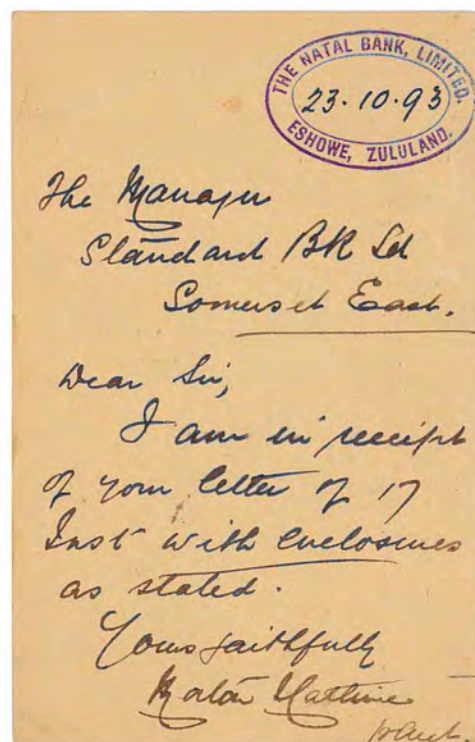 THE NATAL BANK, LIMITED.
23.10.93
ESHOWE, ZULULAND.
The Manager
Standard Bk Ld
Somerset East.
Dear Sir,
I am in receipt
of your letter of 17
Inst with enclosures
as stated.
Yours faithfully